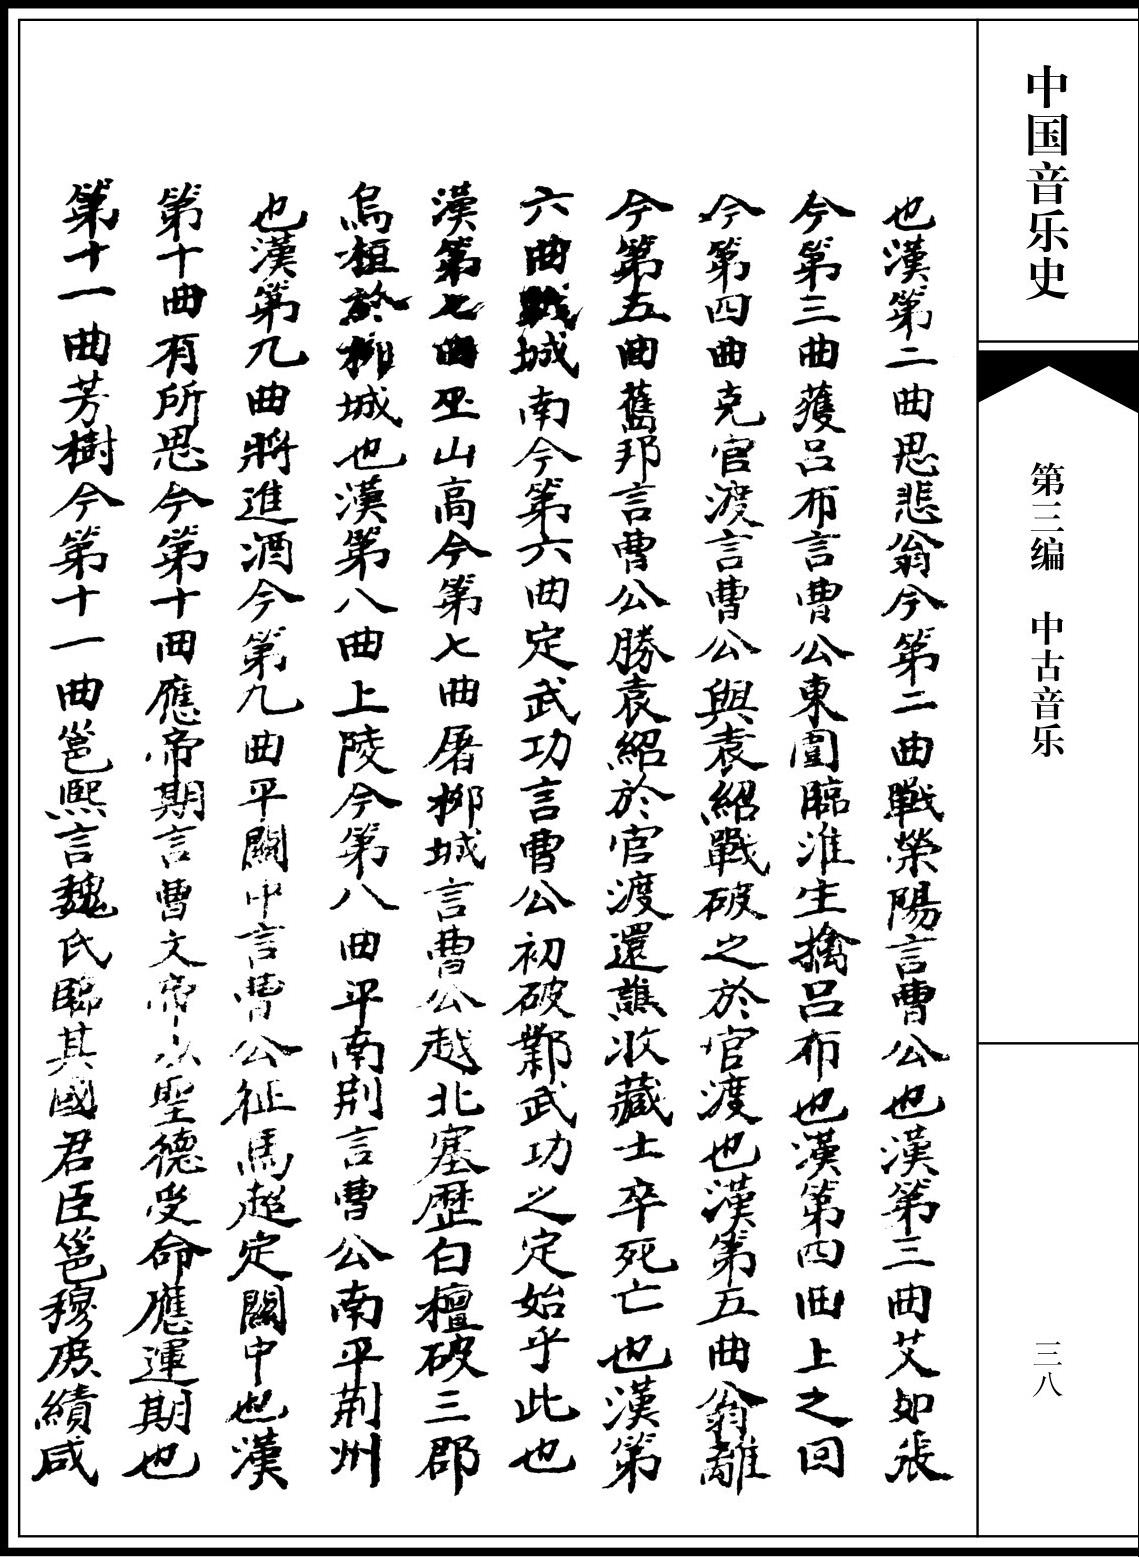 中国音乐史
第三编　中古音乐
三八
也漢第二曲思悲翁今第二曲戰榮陽言曹公也漢第三曲艾如張
今第三曲獲呂布言曹公東圍臨淮生擒呂布也漢第四曲上之回
今第四曲克官渡言曹公與袁紹戰破之於官渡也漢第五曲翁離
今第五曲舊邦言曹公勝袁紹於官渡還譙收藏士卒死亡也漢第
六曲戰城南今第六曲定武功言曹公初破鄴武功之定始乎此也
漢第七曲巫山高今第七曲屠柳城言曹公越北塞歷白檀破三郡
烏桓於柳城也漢第八曲上陵今第八曲平南荆言曹公南平荆州
也漢第九曲將進酒今第九曲平關中言曹公征馬超定關中也漢
第十曲有所思今第十曲應帝期言曹文帝以聖德受命應運期也
第十一曲芳樹今第十一曲邕熙言魏氏臨其國君臣邕穆庶績咸